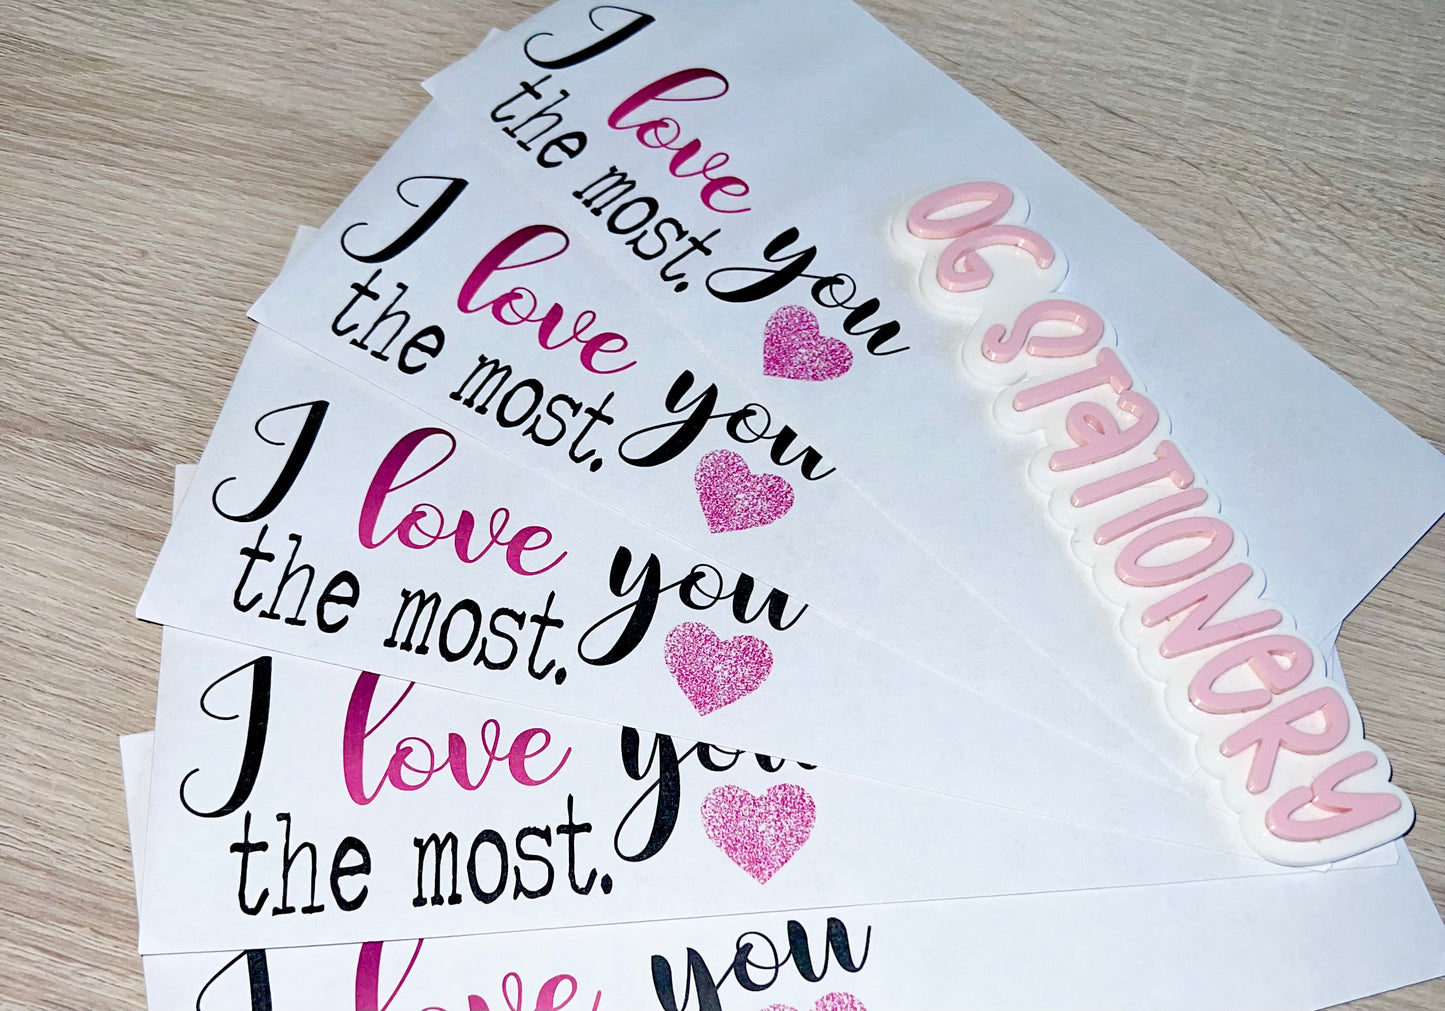 I love you
the most.
I love you
the most.
I love you
the most.
I love you
the most.
I love you
OG STATIONERY